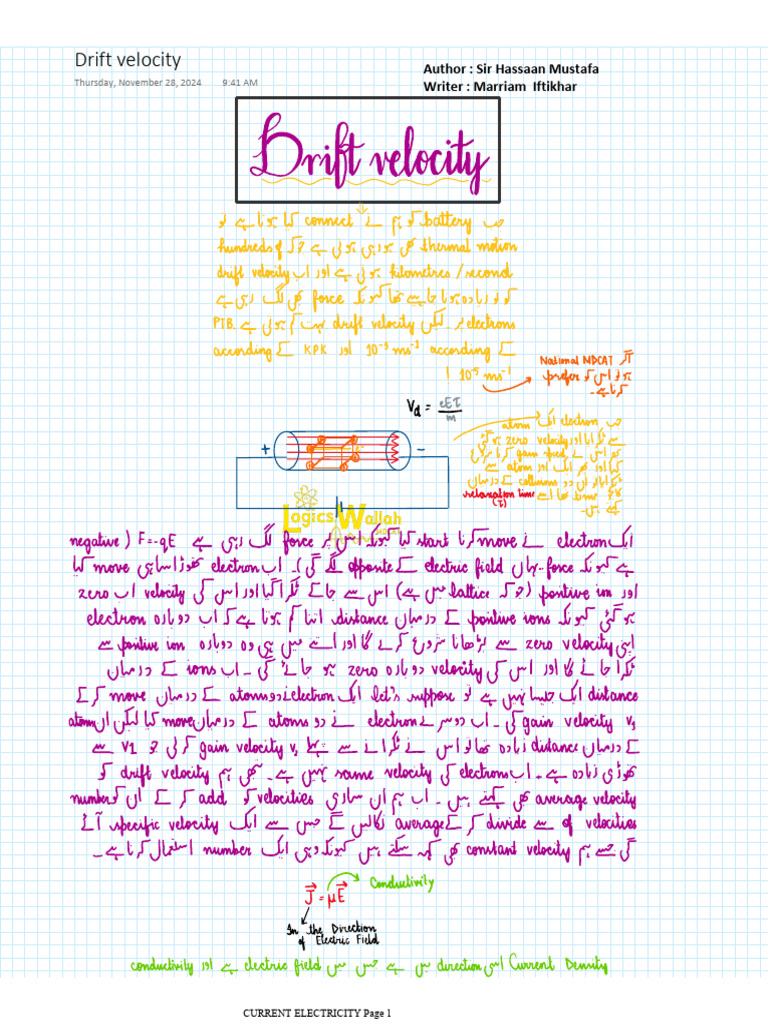 Drift velocity
Thursday, November 28, 2024 9:41 AM
Author : Sir Hassaan Mustafa
Writer : Marriam Iftikhar
Drift velocity
جب battery کو ہم نے connect کیا ہوتا ہے تو
thermal motion بھی ہو رہی ہوتی ہے جو کہ hundreds of
kilometres/second ہوتی ہے اور اب drift velocity
کو تو زیادہ ہونا چاہیے تھا کیونکہ force بھی لگ رہی ہے
electrons پر۔ لیکن drift velocity بہت کم ہوتی ہے PTB.
کے according 10⁻³ ms⁻¹ اور KPK کے according
10⁻⁵ ms⁻¹
اگر National MDCAT
ہو تو اس کو prefer
کرنا ہے۔
Vd = eEτ/m
جب electron ایک atom
سے ٹکرایا اور velocity zero ہو گئی
پھر اس نے speed gain کرنا شروع
کیا اور پھر ایک اور atom سے
ٹکرایا تو ان دو collisions کے درمیان
time کو relaxation time
(τ)
کہتے ہیں۔
+ −
Logics Wallah
ایک electron نے move کرنا start کیا کیونکہ اس پر force لگ رہی ہے F=-qE (negative
ہے کیونکہ force یہاں electric field کے opposite لگے گی)۔ اب electron تھوڑا سا ہی move کیا
اور positive ion (جو کہ lattice میں ہے) اس سے جا کے ٹکرا گیا اور اس کی velocity اب zero
ہو گئی کیونکہ positive ions کے درمیان distance اتنا کم ہوتا ہے کہ اب دوبارہ electron
اپنی velocity zero سے بڑھانا شروع کرے گا اور اتنے میں ہی وہ دوبارہ positive ion سے
ٹکرا جائے گا اور اس کی velocity دوبارہ zero ہو جائے گی۔ اب ions کے درمیان
distance ایک جیسا نہیں ہے تو let's suppose ایک electron نے دو atoms کے درمیان move کر کے
v₁ velocity gain کی۔ اب دوسرے electron نے دو atoms کے درمیان move کیا لیکن ان atoms
کے درمیان distance زیادہ تھا تو اس نے ٹکرانے سے پہلے v₂ velocity gain کر لی جو v1 سے
تھوڑی زیادہ ہے۔ اب electron کی velocity same نہیں ہے۔ بھی ہم drift velocity کو
average velocity بھی کہتے ہیں۔ اب ہم ان ساری velocities کو add کر کے ان کو number
of velocities سے divide کر کے average نکالیں گے جس سے ایک specific velocity آئے
گی جسے ہم constant velocity بھی کہہ سکتے ہیں کیونکہ وہی ایک number استعمال کرنا ہے۔
J = μE
Conductivity
In the Direction
of Electric Field
Current Density اس direction میں ہے جس میں electric field ہے اور conductivity
CURRENT ELECTRICITY Page 1